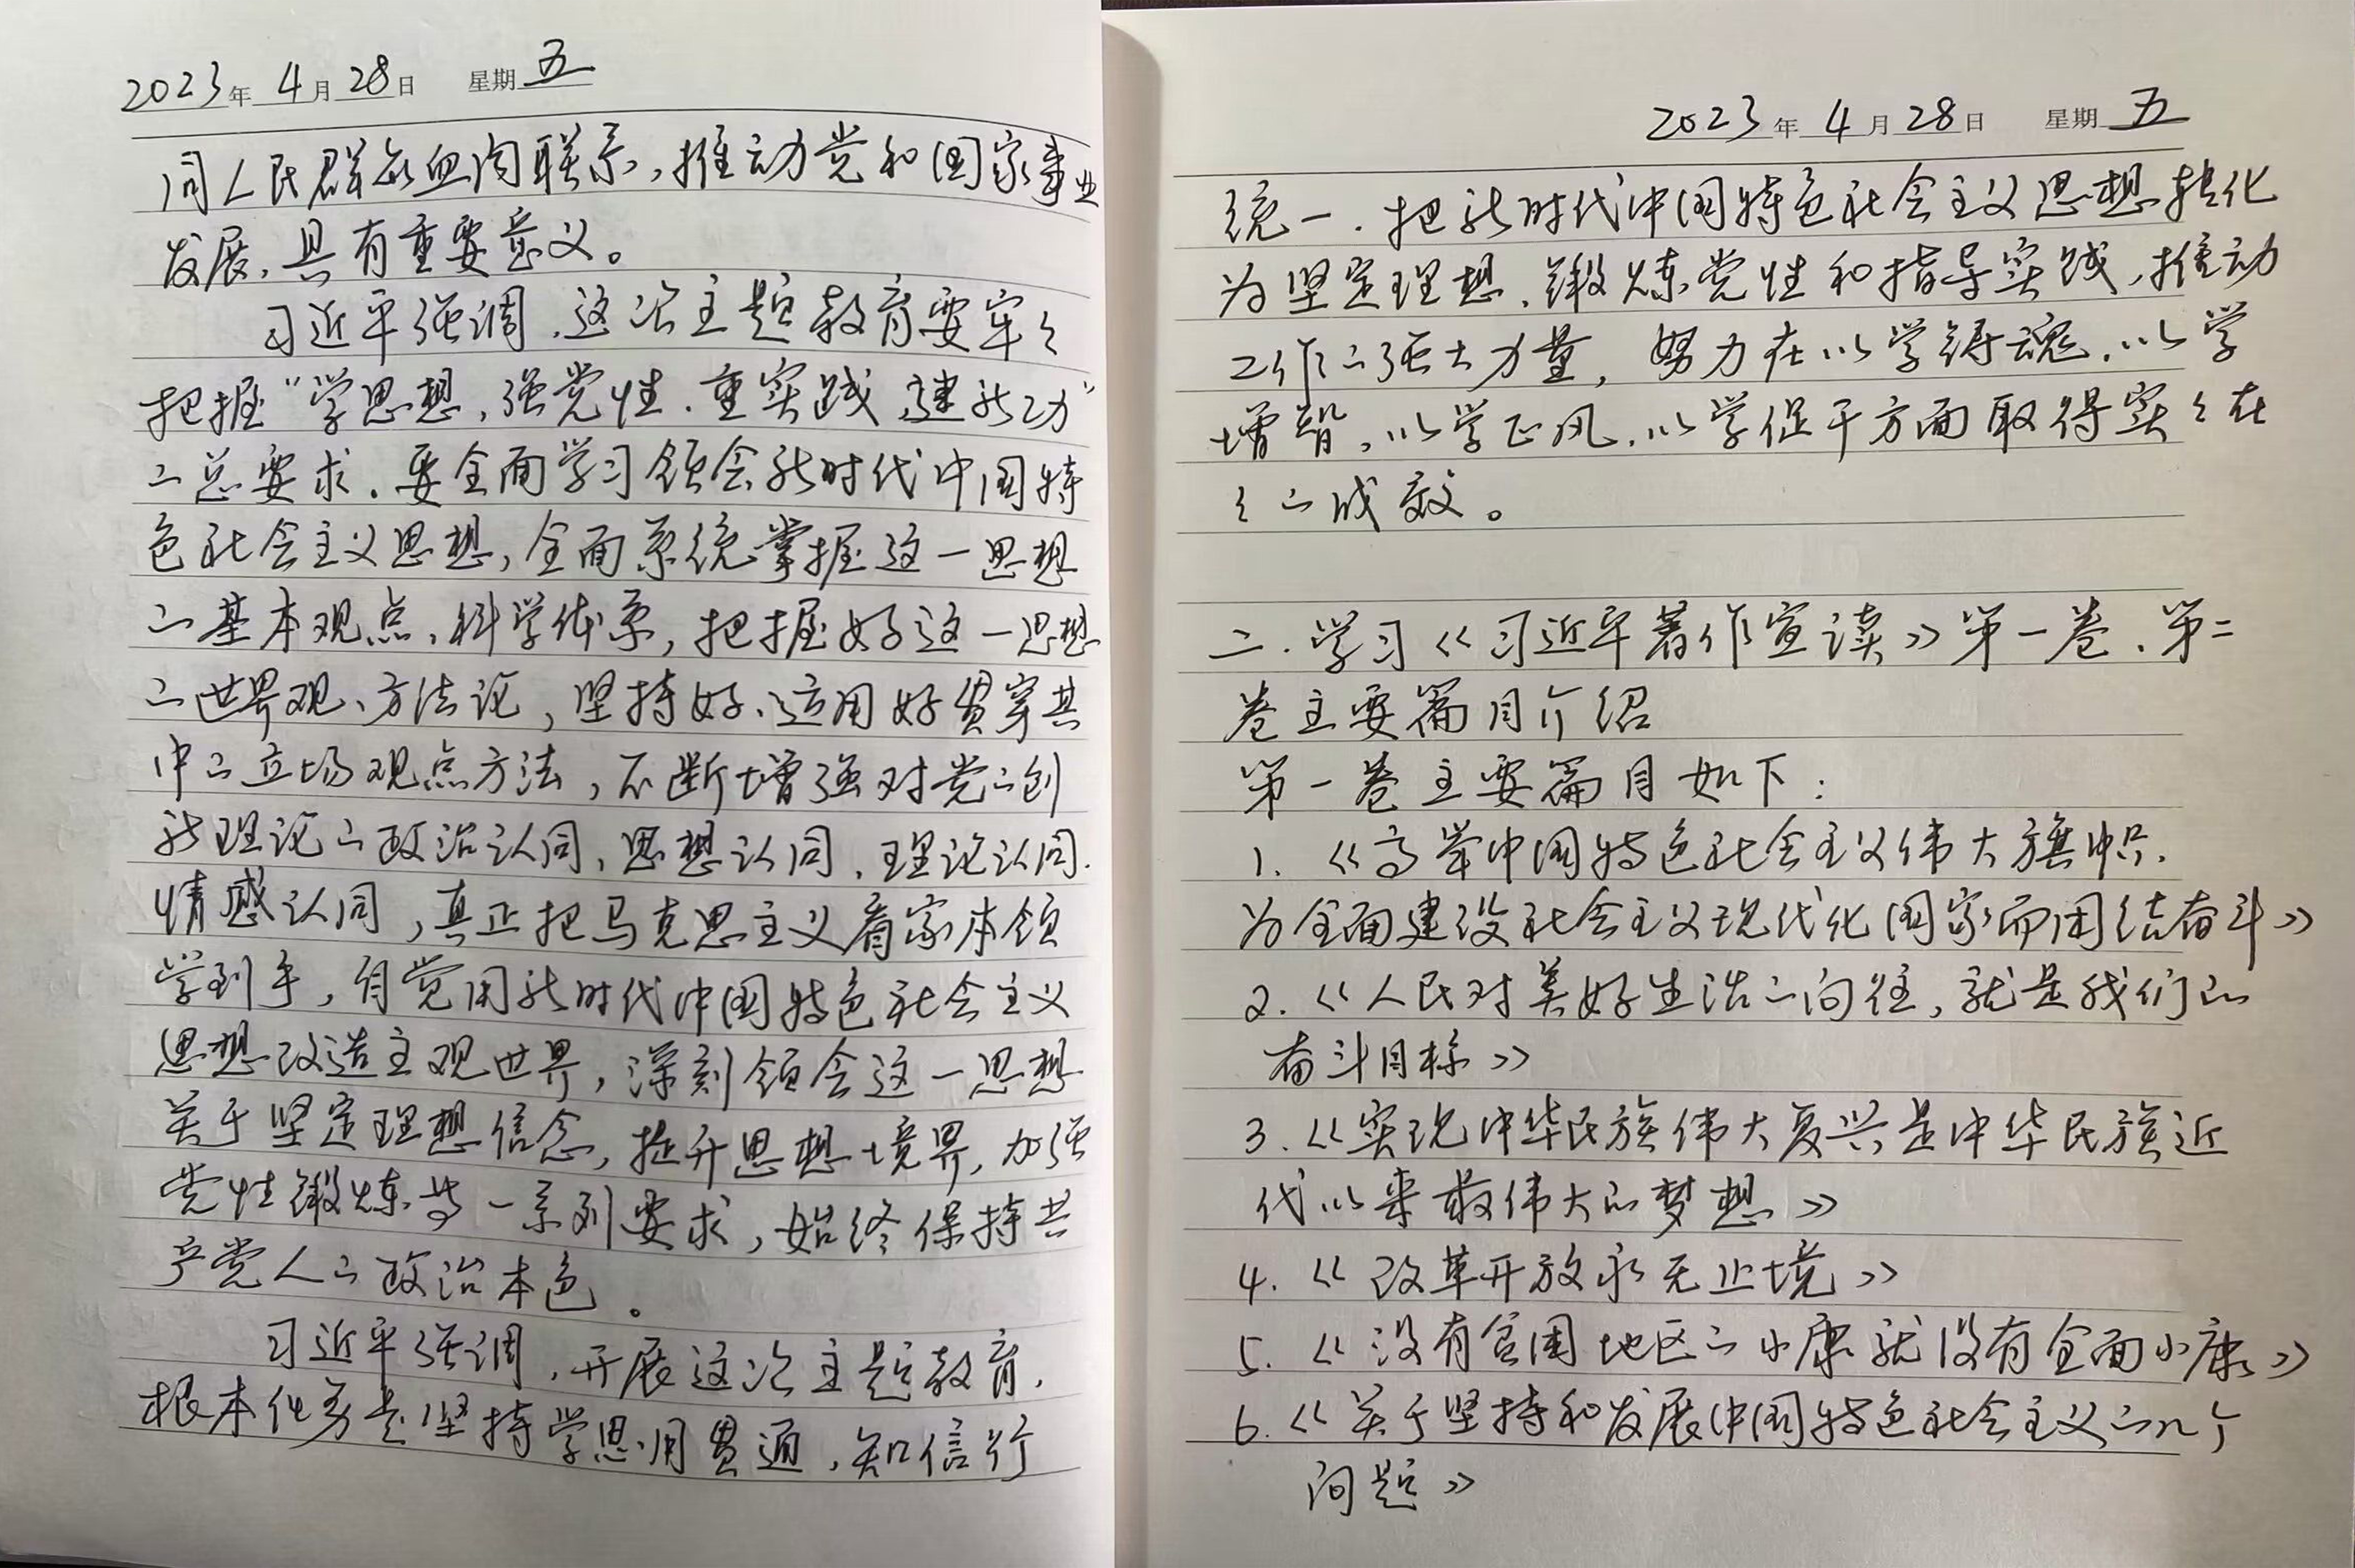 2023年 4月 28日 星期 五
同人民群众血肉联系，推动党和国家事业
发展，具有重要意义。
习近平强调，这次主题教育要牢々
把握“学思想，强党性，重实践，建新功”
的总要求。要全面学习领会新时代中国特
色社会主义思想，全面系统掌握这一思想
的基本观点、科学体系，把握好这一思想
的世界观、方法论，坚持好、运用好贯穿其
中的立场观点方法，不断增强对党的创
新理论的政治认同、思想认同、理论认同、
情感认同，真正把马克思主义看家本领
学到手，自觉用新时代中国特色社会主义
思想改造主观世界，深刻领会这一思想
关于坚定理想信念，提升思想境界，加强
党性锻炼等一系列要求，始终保持共
产党人的政治本色。
习近平强调，开展这次主题教育，
根本任务是坚持学思用贯通，知信行
2023年 4月 28日 星期 五
统一，把新时代中国特色社会主义思想转化
为坚定理想、锻炼党性和指导实践、推动
工作的强大力量，努力在以学铸魂、以学
增智，以学正风，以学促干方面取得实々在
々的成效。
二．学习《习近平著作宣读》第一卷、第二
卷主要篇目介绍
第一卷主要篇目如下：
1. 《高举中国特色社会主义伟大旗帜，
为全面建设社会主义现代化国家而团结奋斗》
2. 《人民对美好生活的向往，就是我们的
奋斗目标》
3. 《实现中华民族伟大复兴是中华民族近
代以来最伟大的梦想》
4. 《改革开放永无止境》
5. 《没有贫困地区的小康就没有全面小康》
6. 《关于坚持和发展中国特色社会主义的几个
问题》